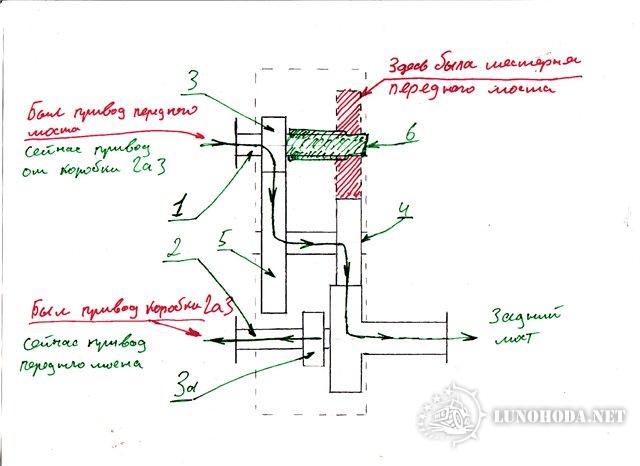 Здесь была шестерня
переднего моста
3
Был привод переднего
моста
6
Сейчас привод
от коробки Газ
1
4
2
5
Был привод коробки Газ
Задний
мост
Сейчас привод
переднего моста
3а
LUNOHODA.NET